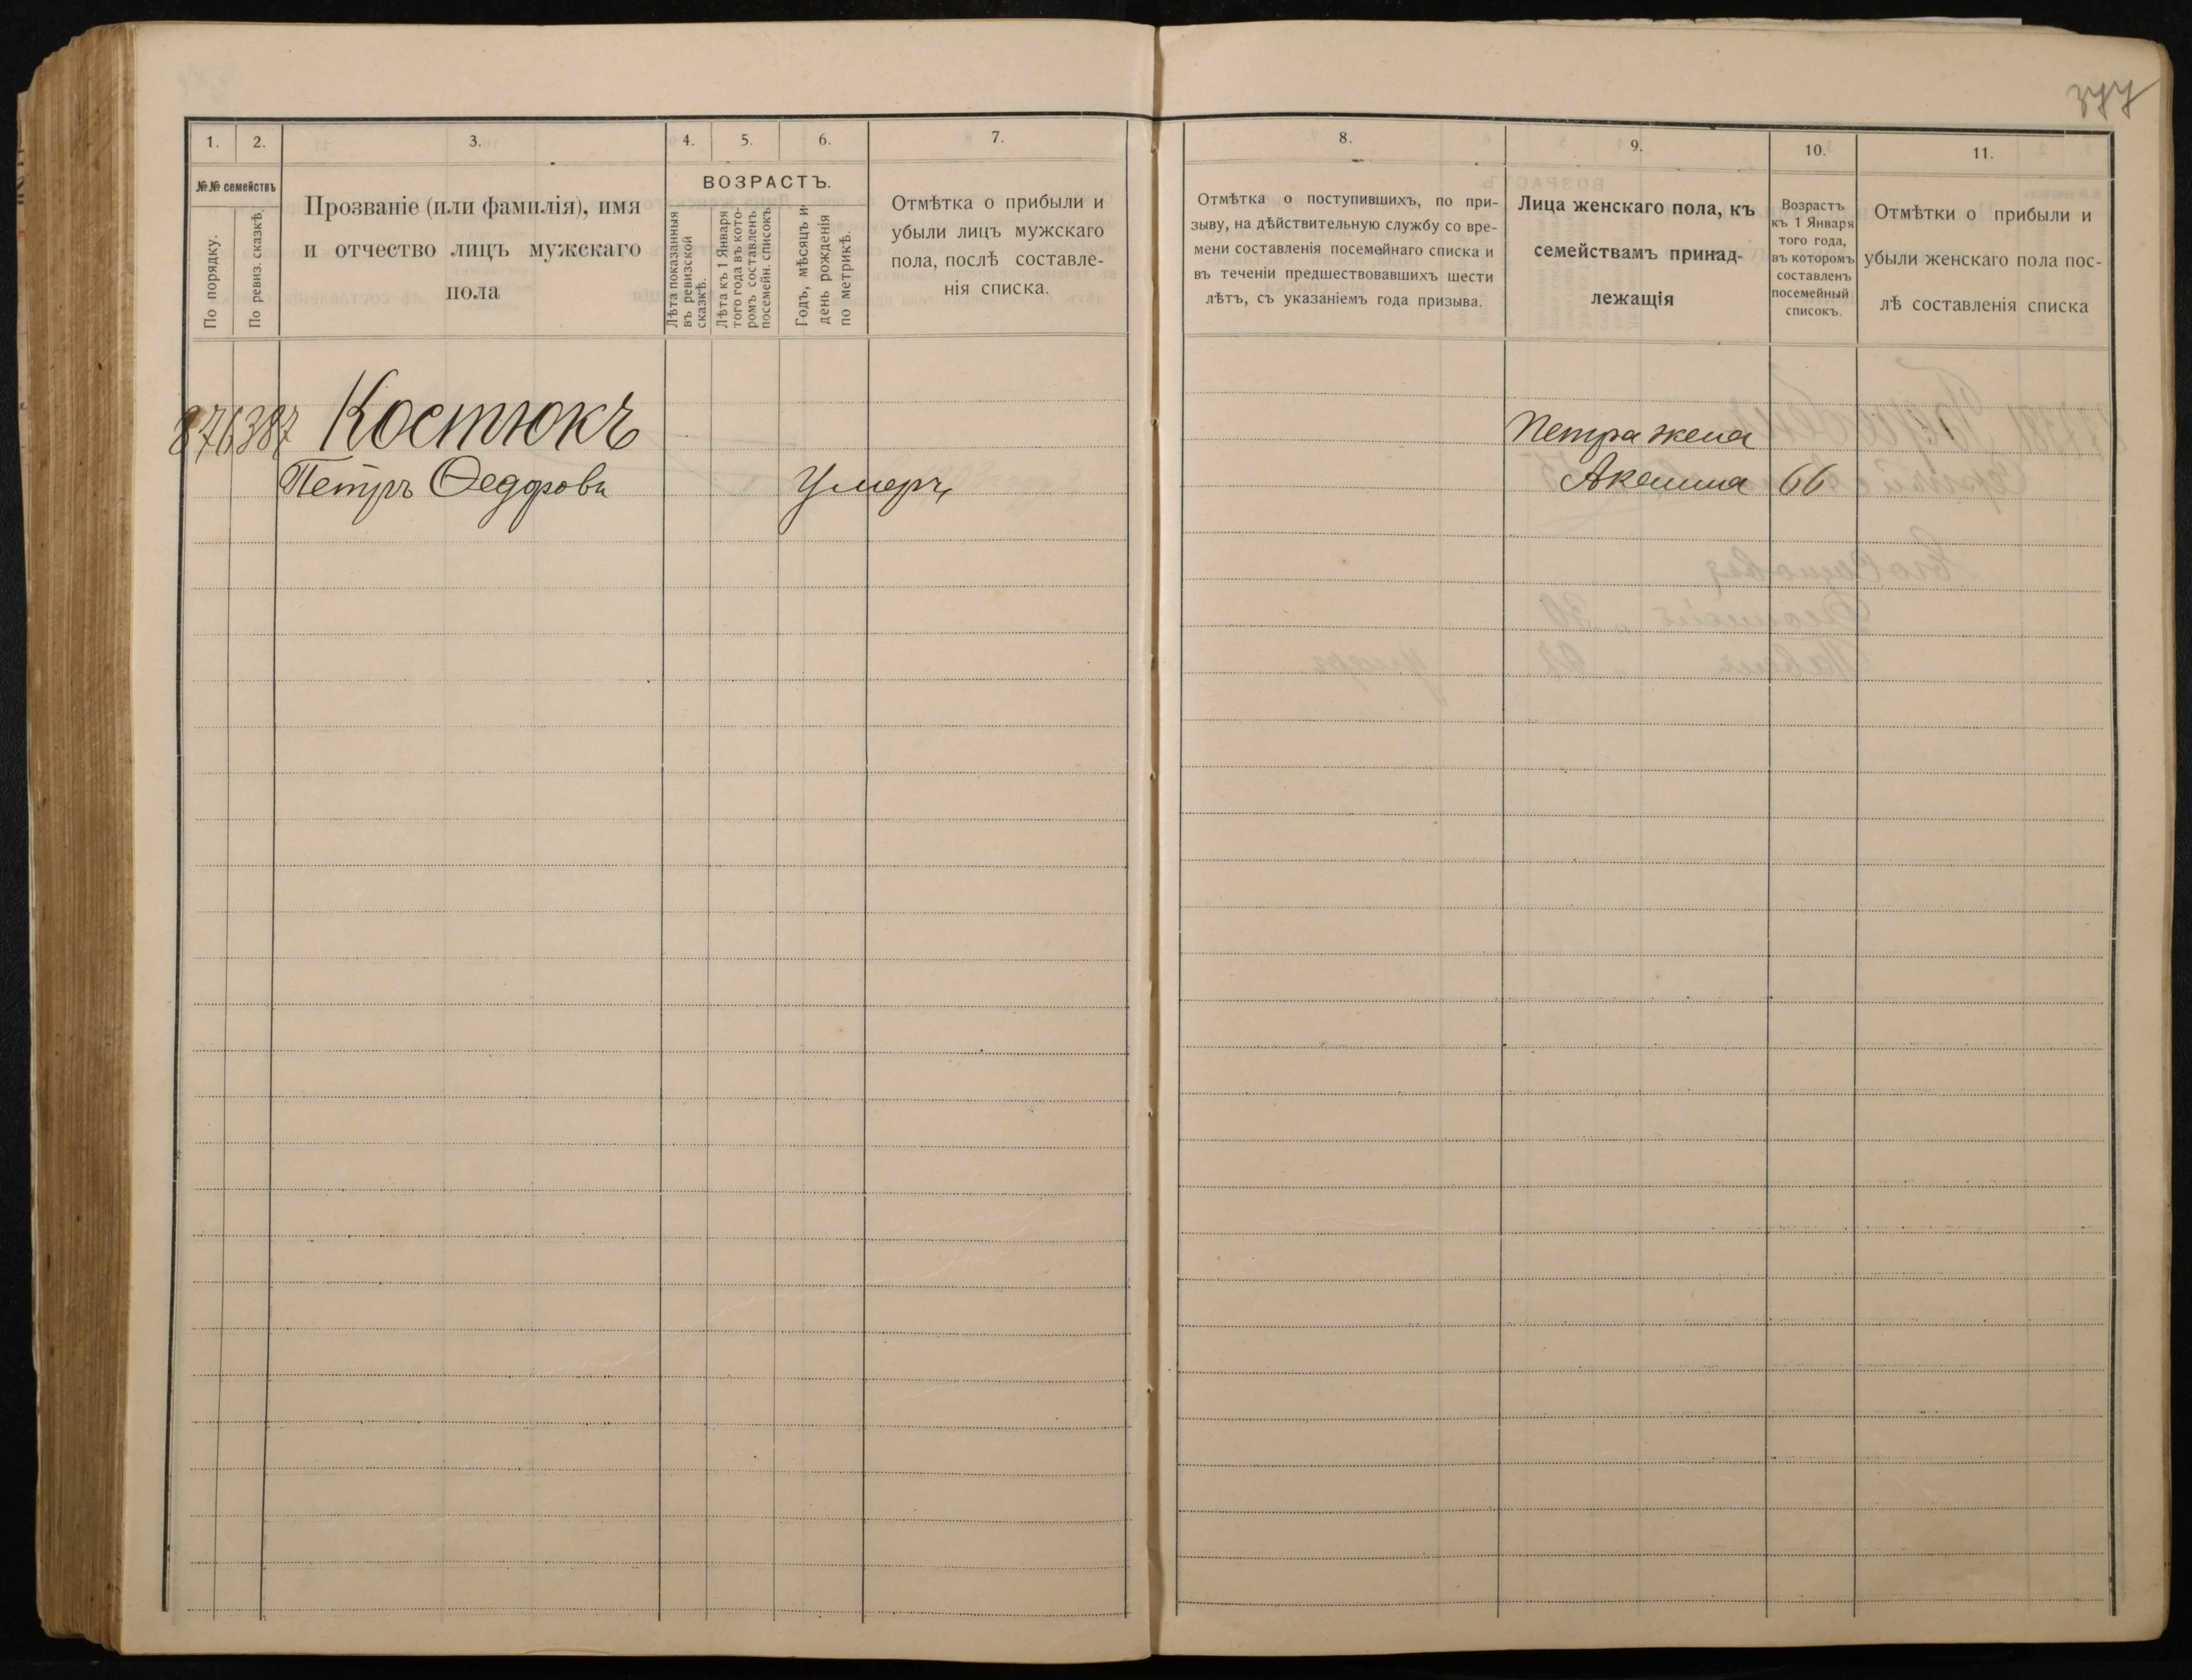 377
1.
2.
3.
4.
5.
6.
7.
№№ семействъ
По порядку.
По ревиз. сказкѣ.
Прозваніе (или фамилія), имя
и отчество лицъ мужскаго
пола
ВОЗРАСТЪ.
Лѣта показанныя
въ ревизской
сказкѣ.
Лѣта къ 1 Января
того года въ кото-
ромъ составленъ
посемейн. списокъ
Годъ, мѣсяцъ и
день рожденія
по метрикѣ.
Отмѣтка о прибыли и
убыли лицъ мужскаго
пола, послѣ составле-
нія списка.
876 387 Костюкъ
Петръ Ѳедоровъ Умеръ
8.
9.
10.
11.
Отмѣтка о поступившихъ, по при-
зыву, на дѣйствительную службу со вре-
мени составленія посемейнаго списка и
въ теченіи предшествовавшихъ шести
лѣтъ, съ указаніемъ года призыва.
Лица женскаго пола, къ
семействамъ принад-
лежащія
Возрастъ
къ 1 Января
того года,
въ которомъ
составленъ
посемейный
списокъ.
Отмѣтки о прибыли и
убыли женскаго пола пос-
лѣ составленія списка
Петра жена
Акенина 66